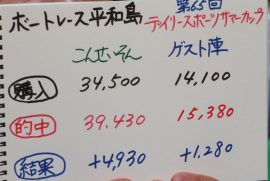 ボートレース平和島
第65回
デイリースポーツサマーカップ
こんせいそん ゲスト陣
購入 34,500 14,100
的中 39.430 15,380
結果 +4,930 +1,280